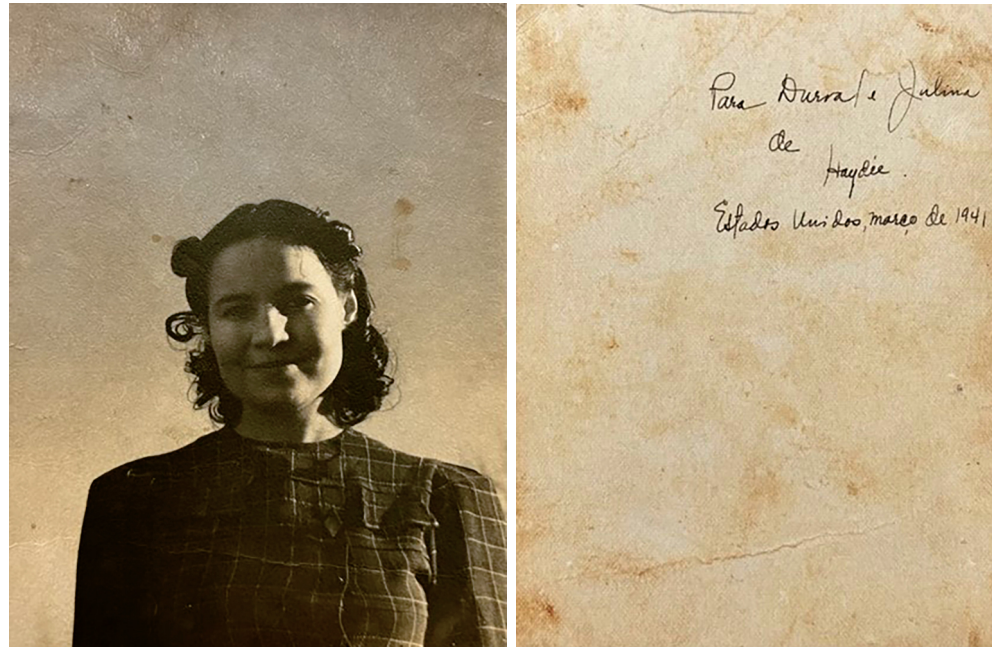 Para Durval e Julina
de
Haydée.
Estados Unidos, março de 1941